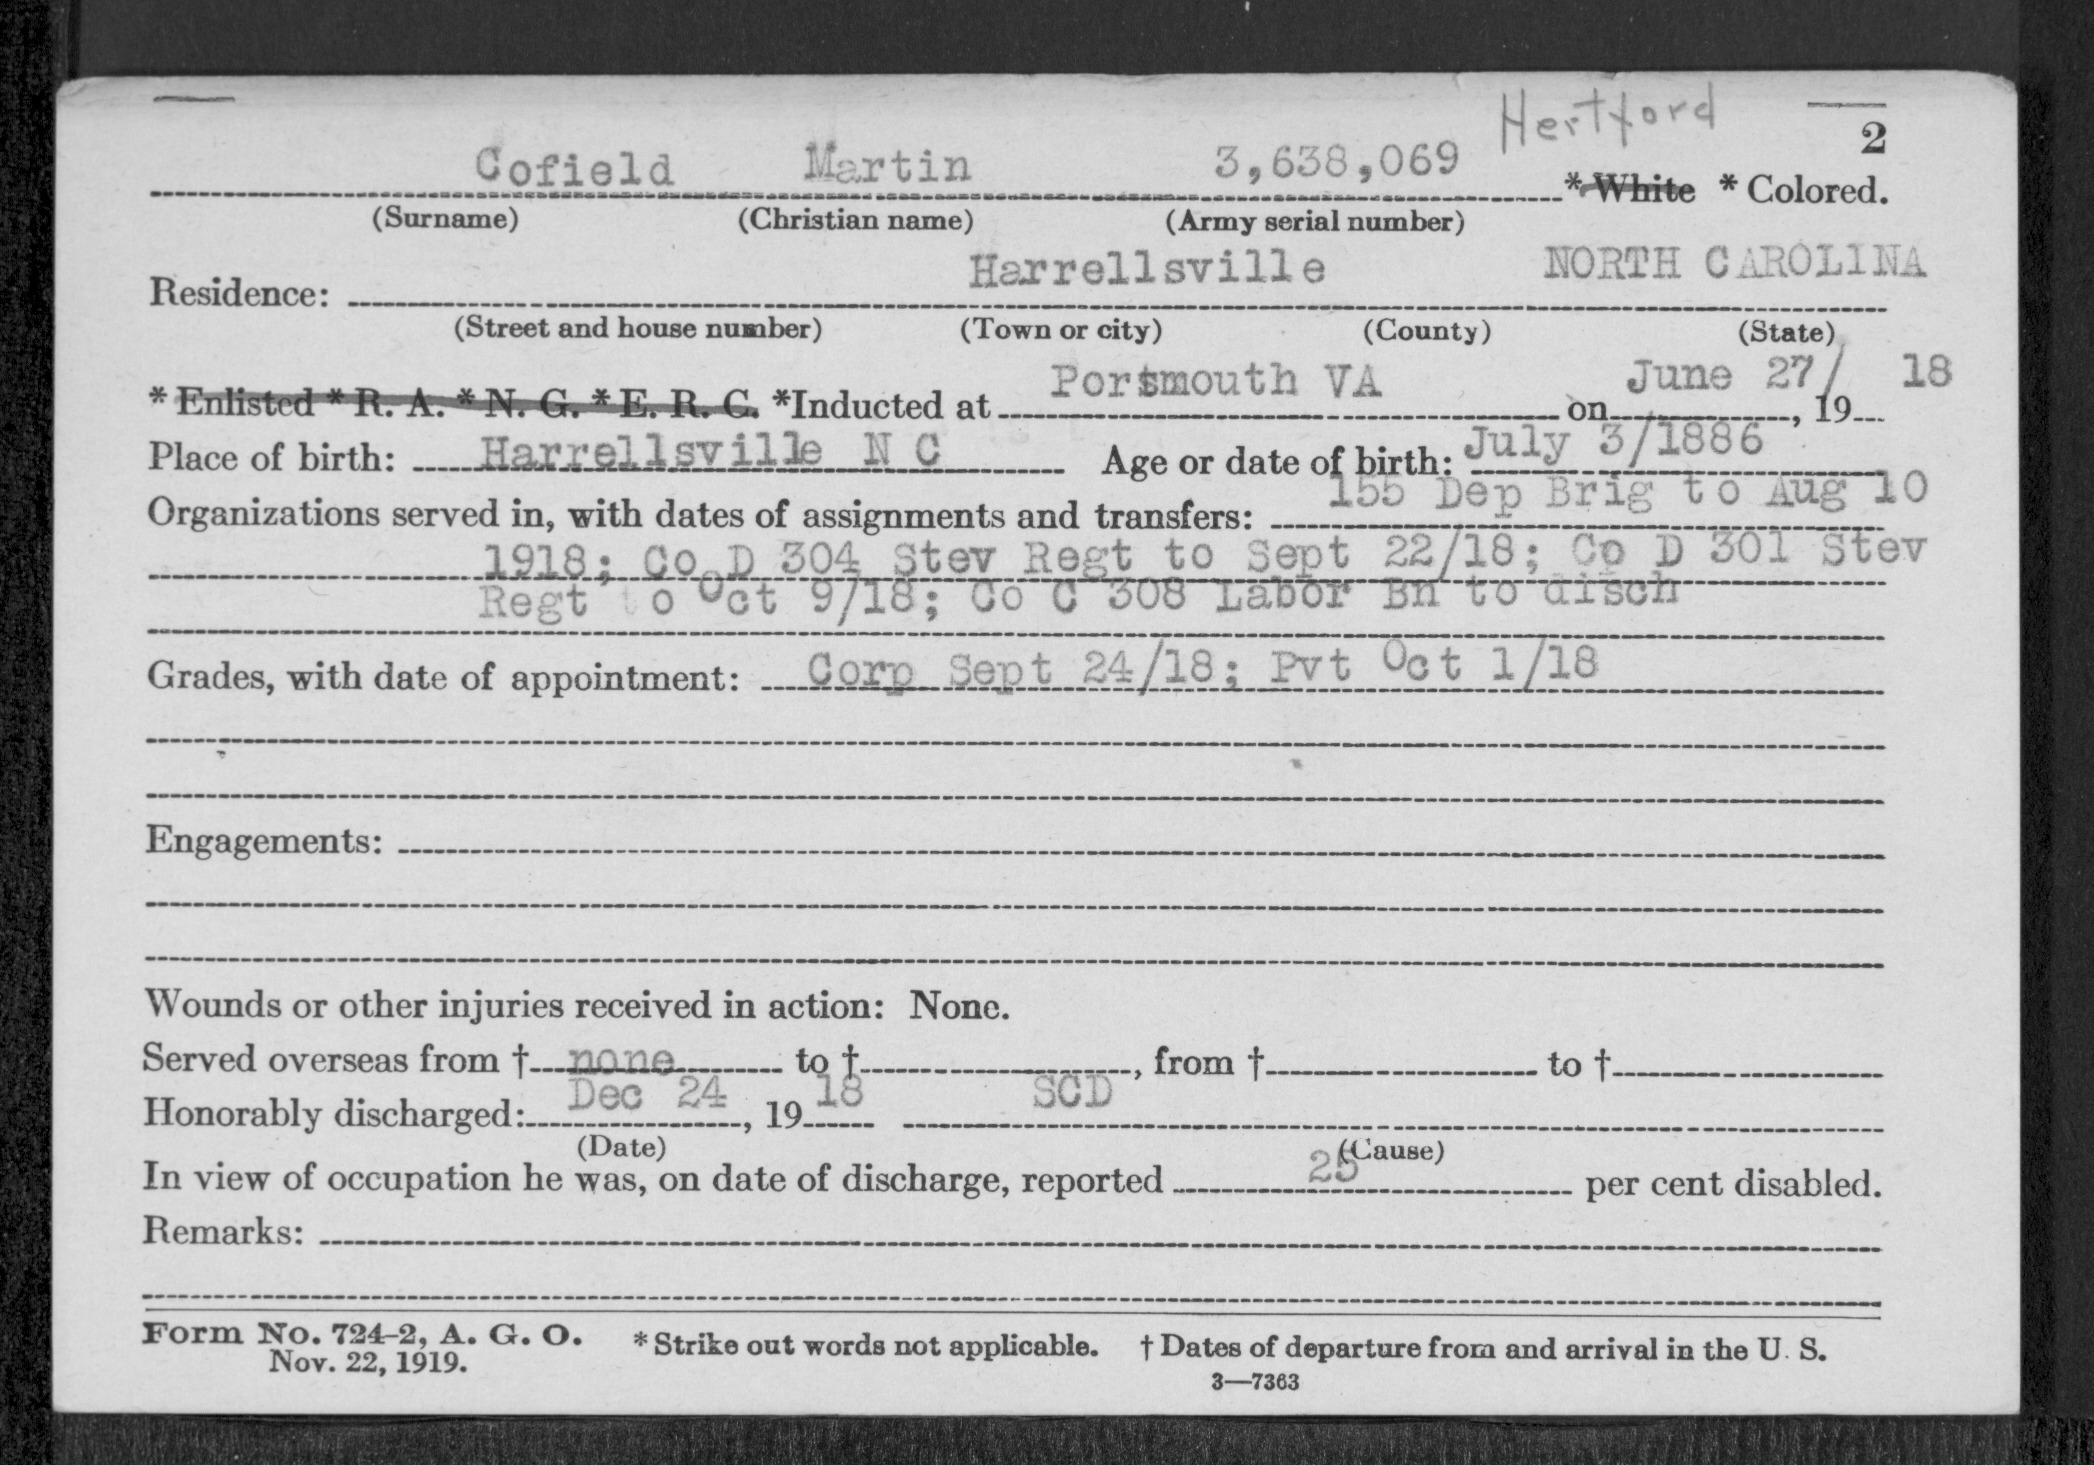 Hertford
2
Cofield Martin 3,638,069 * White * Colored.
(Surname) (Christian name) (Army serial number)
Residence: Harrellsville NORTH CAROLINA
(Street and house number) (Town or city) (County) (State)
* Enlisted * R. A. * N. G. * E. R. C. *Inducted at Portsmouth VA on June 27/, 19 18
Place of birth: Harrellsville N C Age or date of birth: July 3/1886
Organizations served in, with dates of assignments and transfers: 155 Dep Brig to Aug 10
1918; Co D 304 Stev Regt to Sept 22/18; Co D 301 Stev
Regt to Oct 9/18; Co C 308 Labor Bn to disch
Grades, with date of appointment: Corp Sept 24/18; Pvt Oct 1/18
Engagements:
Wounds or other injuries received in action: None.
Served overseas from † none to †, from † to †
Honorably discharged: Dec 24, 19 18 SCD
(Date) (Cause)
In view of occupation he was, on date of discharge, reported 25 per cent disabled.
Remarks:
Form No. 724-2, A. G. O. * Strike out words not applicable. † Dates of departure from and arrival in the U. S.
Nov. 22, 1919.
3—7363